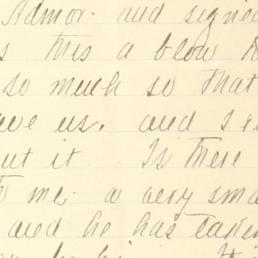 Admor. and signed
this a blow
so much so that
us. and I
it. Is there
me. a very small
and he has taken